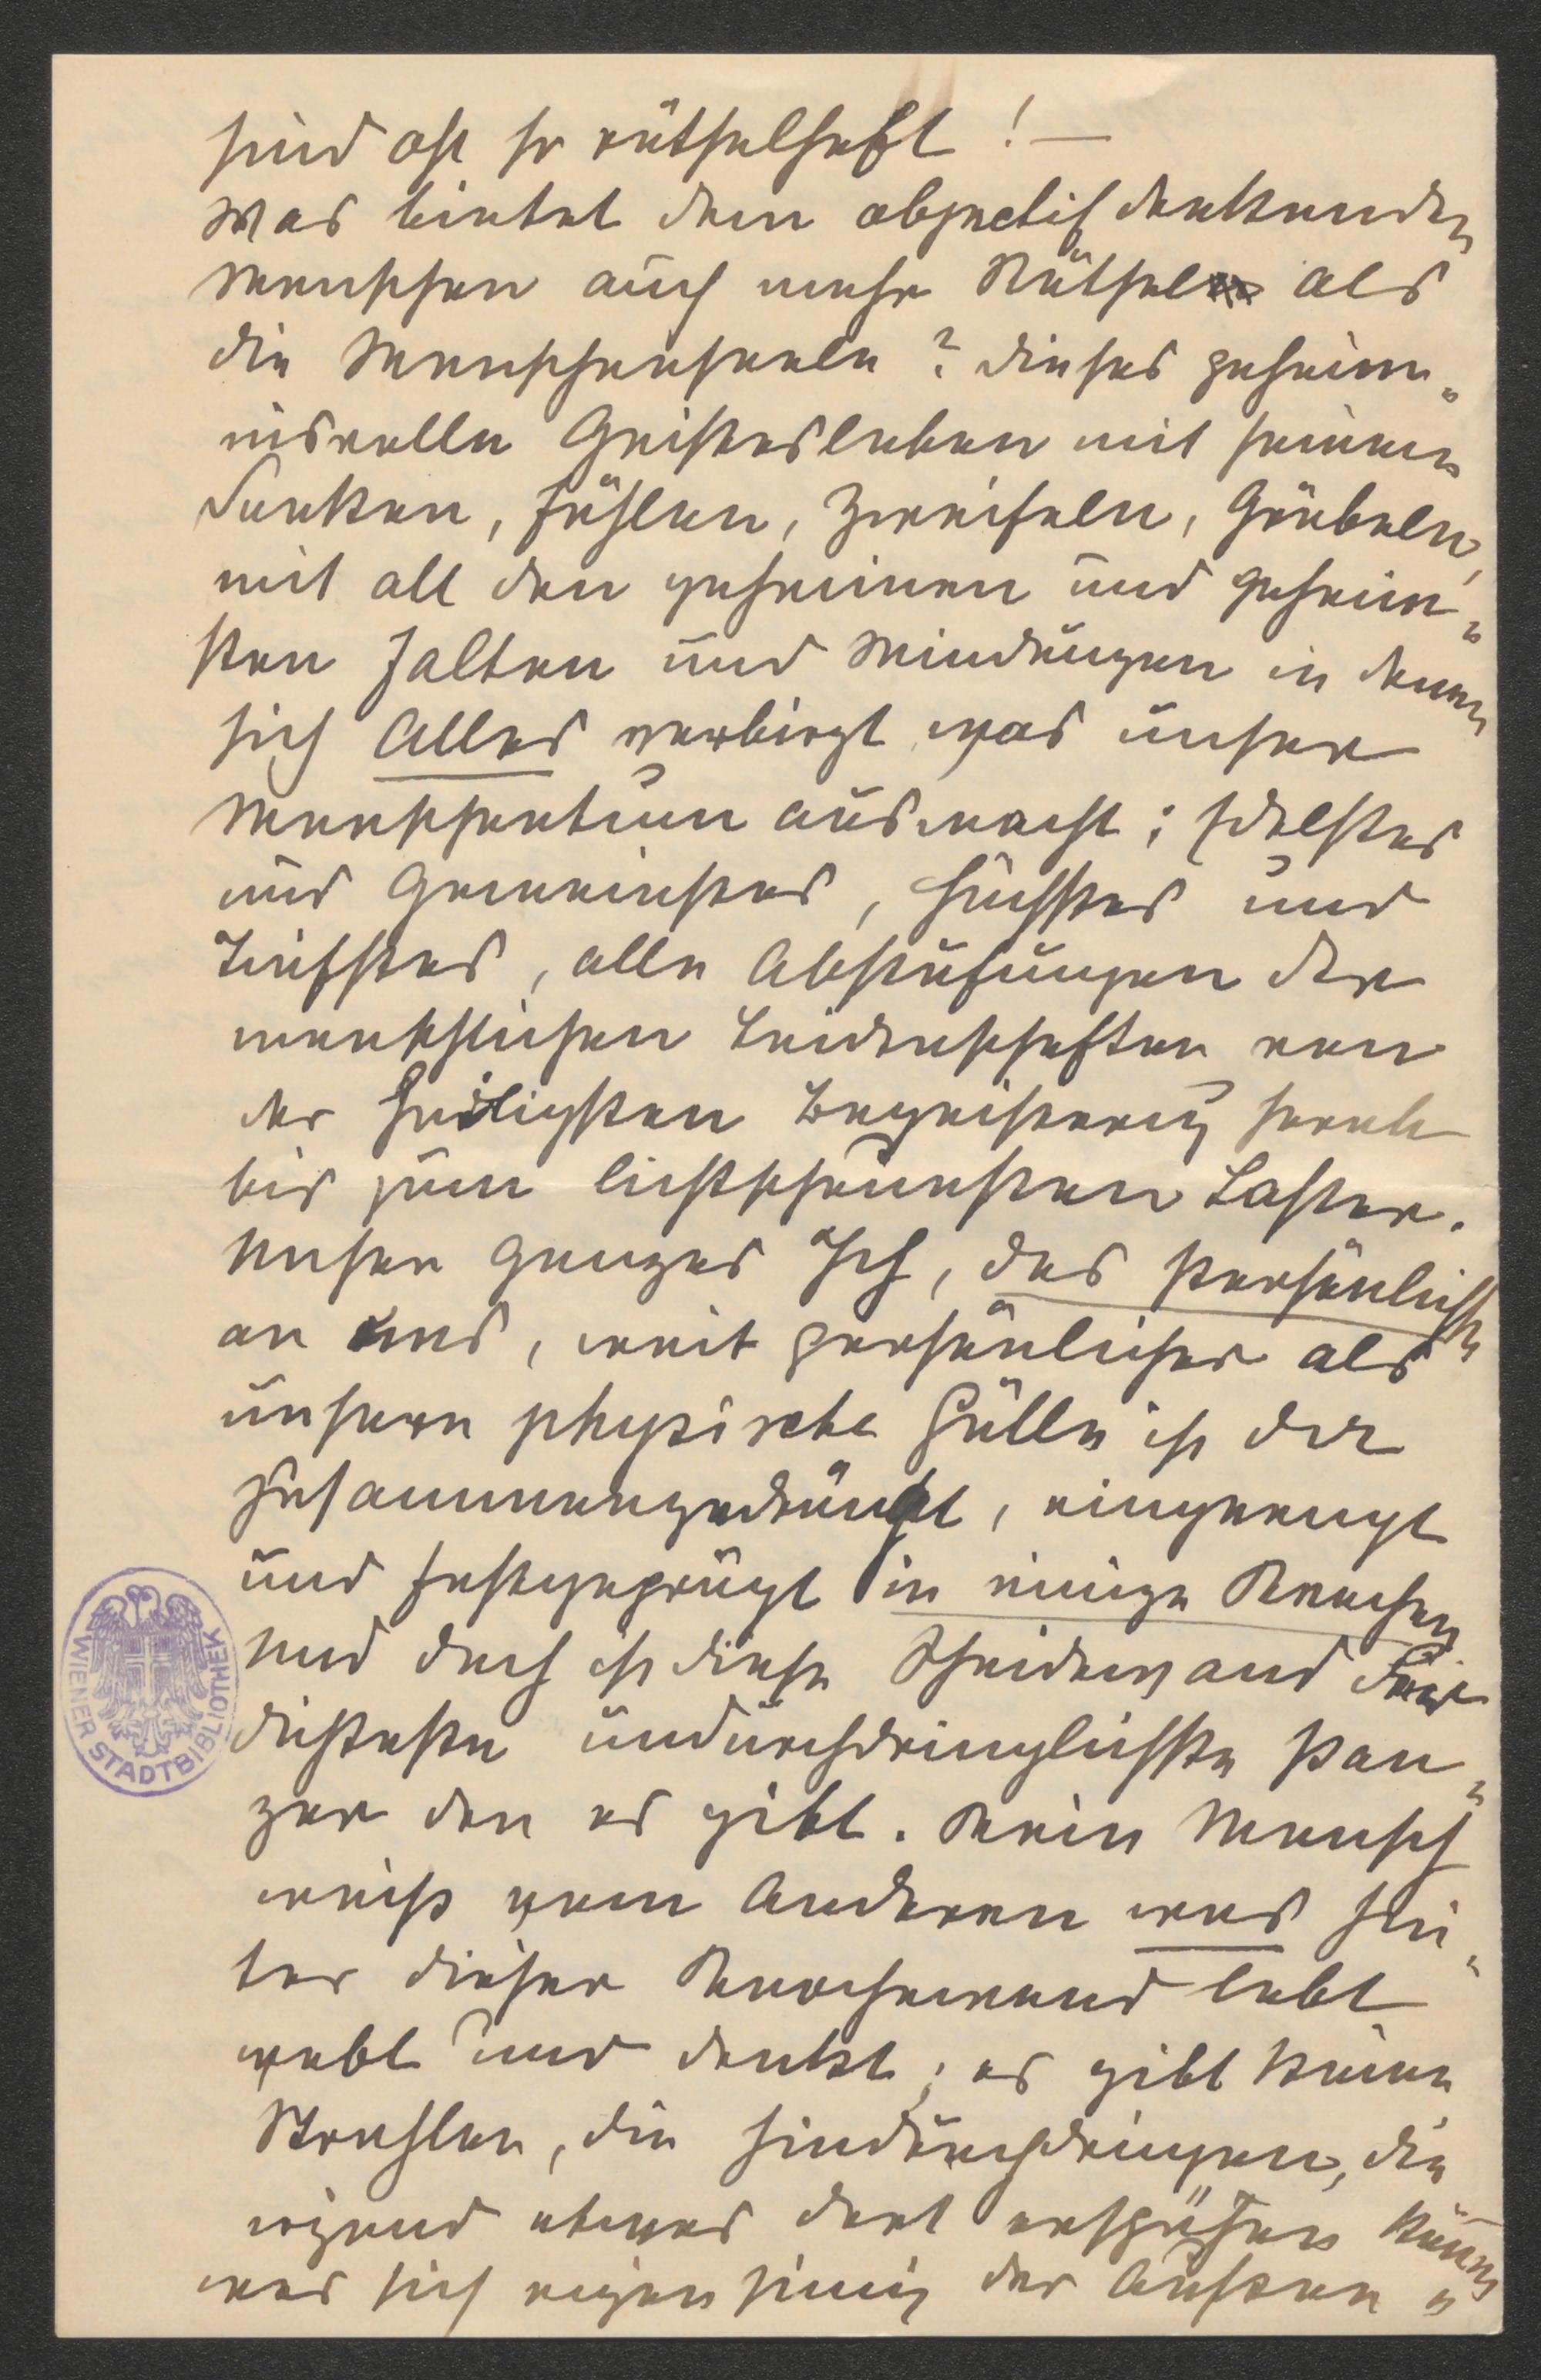 sind oft so rätselhaft! —
Was bietet dem objectif denkenden
Menschen auch mehr Rätsel als
die Menschenseele? dieses geheim-
nisvolle Geistesleben mit seinem
Denken, Fühlen, Zweifeln, Grübeln,
mit all den geheimen und geheim-
sten Falten und Windungen in denen
sich Alles verbirgt was unser
Menschentum ausmacht; Edelstes
und Gemeinstes, Höchstes und
Tiefstes, alle Abstufungen der
menschlichen Leidenschaften von
der heiligsten Begeisterung herab
bis zum lichtscheuesten Laster.
Unser ganzes Ich, das Persönlichste
an uns, weit persönlicher als
unsere physische Hülle ist dir
zusammengedrängt, eingeengt
und festgeprägt in einige Knochen
Und doch ist diese Scheidewand der
dichteste undurchdringlichste Pan-
zer den es gibt. Kein Mensch
weiß vom Anderen was hin-
ter dieser Knochenwand lebt
webt und denkt; es gibt keine
Strahlen, die hindurchdringen, die
irgend etwas dort erspähen können
was sich eigensinnig der Außen-
WIENER STADTBIBLIOTHEK